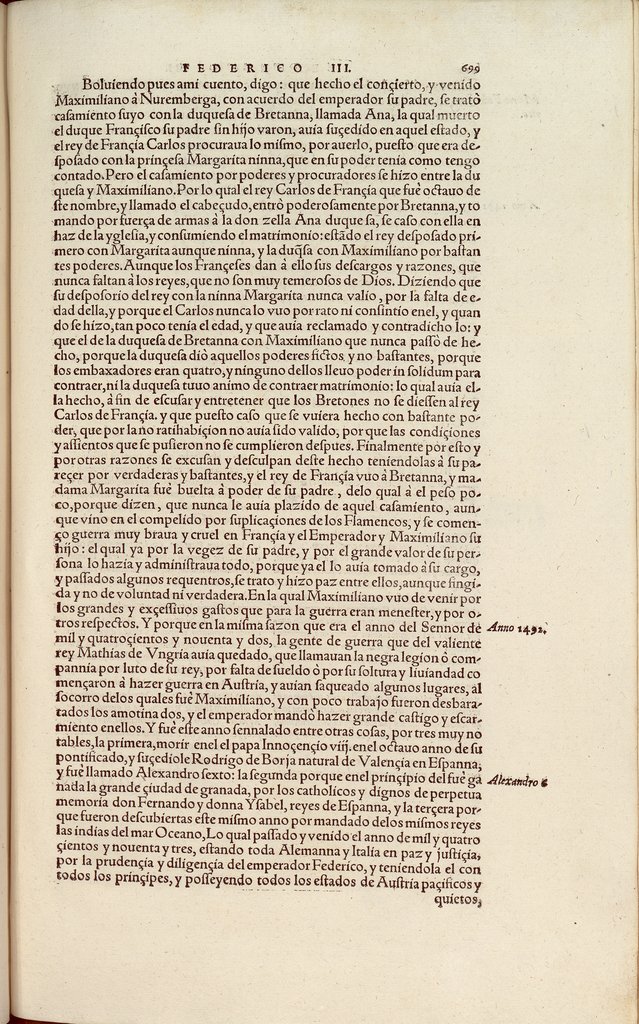 FEDERICO III. 699
Boluiendo pues ami cuento, digo: que hecho el conçierto, y venido
Maximiliano à Nuremberga, con acuerdo del emperador ſu padre, ſe tratò
caſamiento ſuyo con la duqueſa de Bretanna, llamada Ana, la qual muerto
el duque Françiſco ſu padre ſin hijo varon, auia ſuçedido en aquel eſtado, y
el rey de Françia Carlos procuraua lo miſmo, por auerlo, pueſto que era de-
ſpoſado con la prinçeſa Margarita ninna, que en ſu poder tenia como tengo
contado. Pero el caſamiento por poderes y procuradores ſe hizo entre la du
queſa y Maximiliano. Por lo qual el rey Carlos de Françia que fuè octauo de
ſte nombre, y llamado el cabeçudo, entrò poderoſamente por Bretanna, y to
mando por fuerça de armas à la don zella Ana duque ſa, ſe caſo con ella en
haz de la ygleſia, y conſumiendo el matrimonio: eſtãdo el rey deſpoſado pri-
mero con Margarita aunque ninna, y la duq̃ſa con Maximiliano por baſtan
tes poderes. Aunque los Françeſes dan à ello ſus deſcargos y razones, que
nunca faltan à los reyes, que no ſon muy temeroſos de Dios. Diziendo que
ſu deſpoſorio del rey con la ninna Margarita nunca valio, por la falta de e-
dad della, y porque el Carlos nunca lo vuo por rato ni conſintio enel, y quan
do ſe hizo, tan poco tenia el edad, y que auia reclamado y contradicho lo: y
que el de la duqueſa de Bretanna con Maximiliano que nunca paſſò de he-
cho, porque la duqueſa diò aquellos poderes fictos y no baſtantes, porque
los embaxadores eran quatro, y ninguno dellos lleuo poder in ſolidum para
contraer, ni la duqueſa tuuo animo de contraer matrimonio: lo qual auia el-
la hecho, à fin de eſcuſar y entretener que los Bretones no ſe dieſſen al rey
Carlos de Françia. y que pueſto caſo que ſe vuiera hecho con baſtante po-
der, que por la no ratihabiçion no auia ſido valido, porque las condiçiones
y aſſientos que ſe puſieron no ſe cumplieron deſpues. Finalmente por eſto y
por otras razones ſe excuſan y deſculpan deſte hecho teniendolas à ſu pa-
reçer por verdaderas y baſtantes, y el rey de Françia vuo à Bretanna, y ma-
dama Margarita fuè buelta à poder de ſu padre, delo qual à el peſo po-
co, porque dizen, que nunca le auia plazido de aquel caſamiento, aun-
que vino en el compelido por ſuplicaçiones de los Flamencos, y ſe comen-
ço guerra muy braua y cruel en Françia y el Emperador y Maximiliano ſu
hijo: el qual ya por la vegez de ſu padre, y por el grande valor de ſu per-
ſona lo hazia y adminiſtraua todo, porque ya el lo auia tomado à ſu cargo,
y paſſados algunos requentros, ſe trato y hizo paz entre ellos, aunque fingi-
da y no de voluntad ni verdadera. En la qual Maximiliano vuo de venir por
los grandes y exçeſſiuos gaſtos que para la guerra eran meneſter, y por o-
tros reſpectos. Y porque en la miſma ſazon que era el anno del Sennor de
mil y quatroçientos y nouenta y dos, la gente de guerra que del valiente
rey Mathias de Vngria auia quedado, que llamauan la negra legion ò com-
pannia por luto de ſu rey, por falta de ſueldo ò por ſu ſoltura y liuiandad co
mençaron à hazer guerra en Auſtria, y auian ſaqueado algunos lugares, al
ſocorro delos quales fuè Maximiliano, y con poco trabajo fueron desbara-
tados los amotina dos, y el emperador mandò hazer grande caſtigo y eſcar-
miento enellos. Y fuè eſte anno ſennalado entre otras coſas, por tres muy no
tables, la primera, morir enel el papa Innoçençio viij. enel octauo anno de ſu
pontificado, y ſuçediole Rodrigo de Borja natural de Valençia en Eſpanna,
y fuè llamado Alexandro ſexto: la ſegunda porque enel prinçipio del fuè gà
nada la grande çiudad de granada, por los catholicos y dignos de perpetua
memoria don Fernando y donna Yſabel, reyes de Eſpanna, y la terçera por-
que fueron deſcubiertas eſte miſmo anno por mandado delos miſmos reyes
las indias del mar Oceano, Lo qual paſſado y venido el anno de mil y quatro
çientos y nouenta y tres, eſtando toda Alemanna y Italia en paz y juſtiçia,
por la prudençia y diligençia del emperador Federico, y teniendola el con
todos los prinçipes, y poſſeyendo todos los eſtados de Auſtria paçificos y
quietos,
Anno 1492.
Alexandro 6